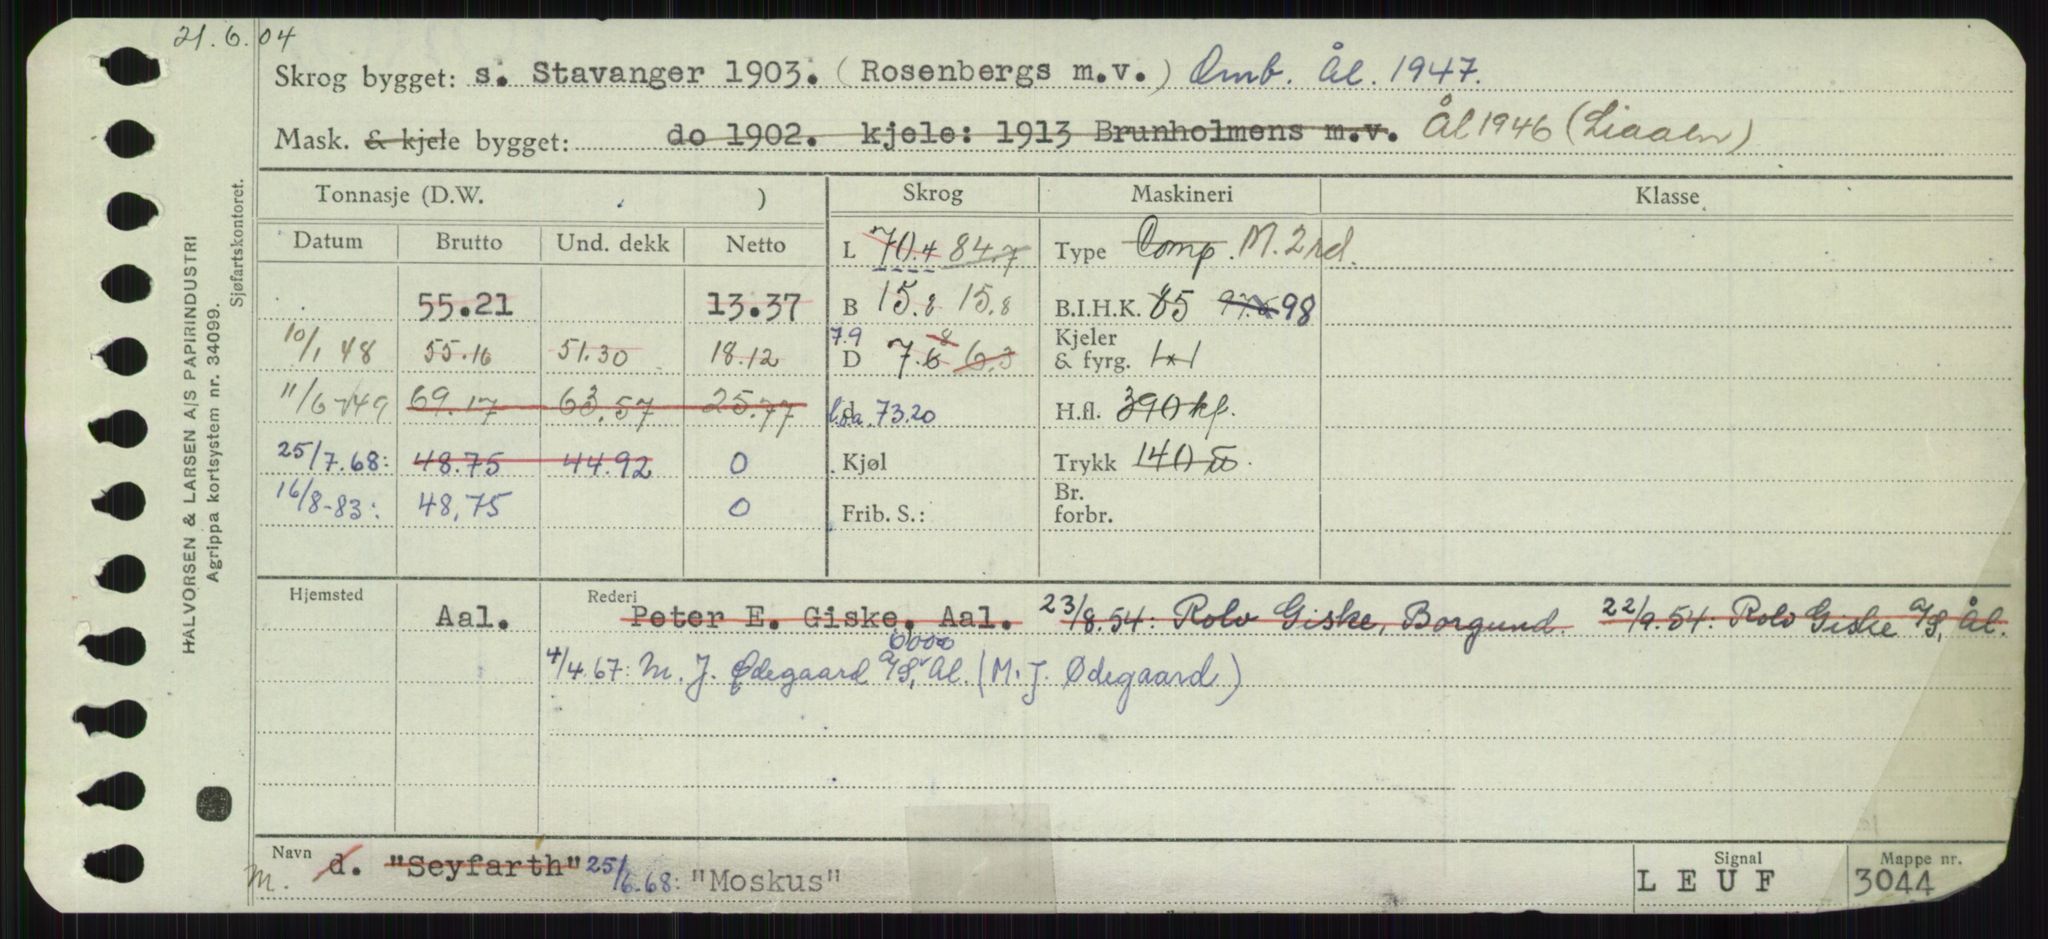 21.6.04
Skrog bygget: s. Stavanger 1903. (Rosenbergs m.v.) Omb. Ål. 1947.
Mask. & kjele bygget: do 1902. kjele: 1913 Brunholmens m.v. Ål 1946 (Liaaen)
HALVORSEN & LARSEN A/S PAPIRINDUSTRI
Agrippa kortsystem nr. 34099.
Sjøfartskontoret.
Tonnasje (D.W. ) Skrog Maskineri Klasse
Datum Brutto Und. dekk Netto L 70.4 84.7 Type Comp. M. 2rd.
55.21 13.37 B 15.8 15.8 B.I.H.K. 85 98
10/1 48 55.16 51.30 18.12 7.9 D 7.6 8 6.3 Kjeler & fyrg. 1x1
11/6-49 69.17 63.57 25.77 d l.o.a. 73.20 H.fl. 390 kf.
25/7.68: 48.75 44.92 0 Kjøl Trykk 140
16/8-83: 48,75 0 Frib. S.: Br. forbr.
Hjemsted Aal. Rederi Peter E. Giske, Aal. 23/8.54: Rolv Giske, Borgund. 22/9.54: Rolv Giske A/S, Ål.
4/4.67: M. J. Ødegaard A/S, Ål. (M. J. Ødegaard)
Navn m. d. "Seyfarth" 25/6.68: "Moskus" Signal LEUF Mappe nr. 3044